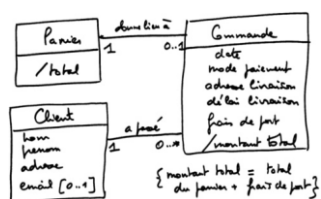 Panier
/total
donne lieu à
1
0..1
Commande
date
mode paiement
adresse livraison
délai livraison
frais de port
/montant total
Client
nom
prenom
adresse
email [0..1]
a passé
1
0..*
{montant total = total
du panier + frais de port}